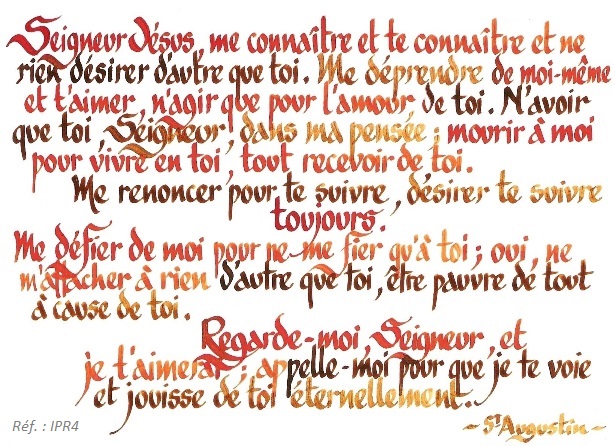 Seigneur Jésus, me connaître et te connaître et ne
rien désirer d'autre que toi. Me déprendre de moi-même
et t'aimer, n'agir que pour l'amour de toi. N'avoir
que toi, Seigneur, dans ma pensée ; mourir à moi
pour vivre en toi, tout recevoir de toi.
Me renoncer pour te suivre, désirer te suivre
toujours.
Me défier de moi pour ne me fier qu'à toi ; oui, ne
m'attacher à rien d'autre que toi, être pauvre de tout
à cause de toi.
Regarde-moi, Seigneur, et
je t'aimerai ; appelle-moi pour que je te voie
et jouisse de toi éternellement.
Réf. : IPR4
- St Augustin -